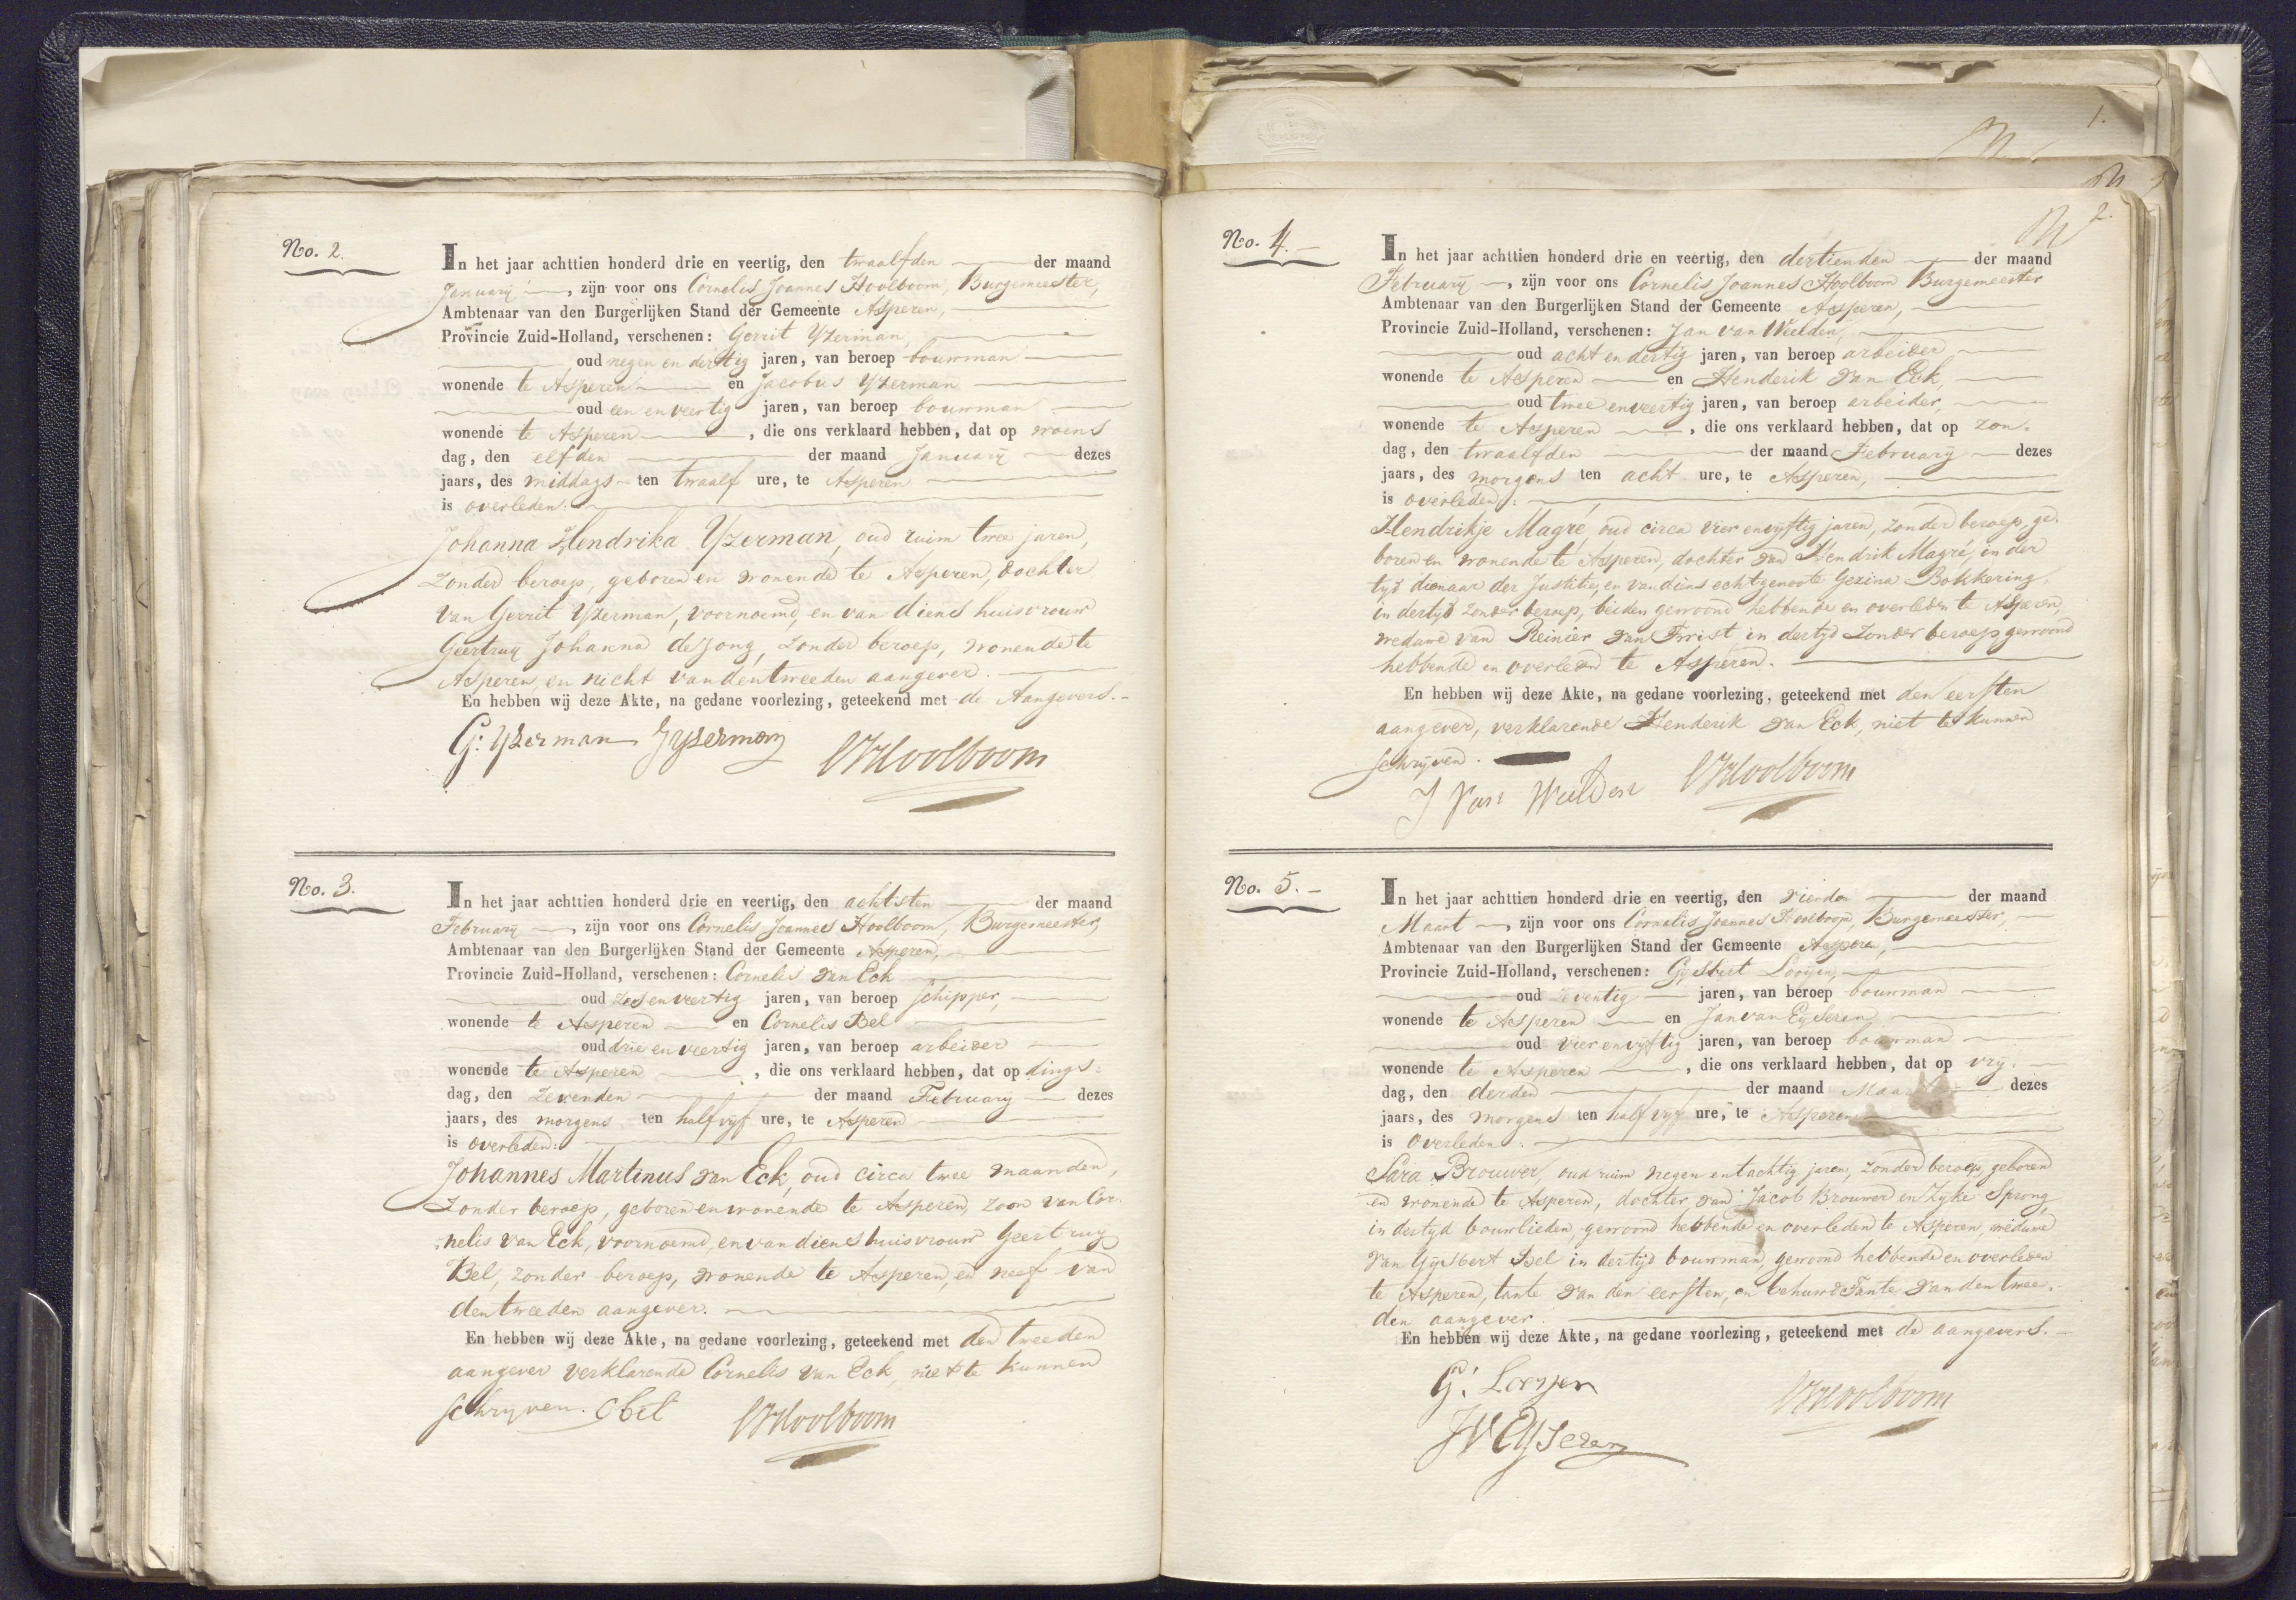 No. 2.
In het jaar achttien honderd drie en veertig, den twaalfden der maand
January, zijn voor ons Cornelis Joannes Hoolboom, Burgemeester,
Ambtenaar van den Burgerlijken Stand der Gemeente Asperen,
Provincie Zuid-Holland, verschenen: Gerrit Yzerman,
oud negen en dertig jaren, van beroep bouwman
wonende te Asperen en Jacobus Yzerman
oud een en veertig jaren, van beroep bouwman
wonende te Asperen, die ons verklaard hebben, dat op woens
dag, den elfden der maand January dezes
jaars, des middags ten twaalf ure, te Asperen
is overleden:
Johanna Hendrika Yzerman, oud ruim twee jaren,
zonder beroep, geboren en wonende te Asperen, dochter
van Gerrit Yzerman, voornoemd, en van diens huisvrouw
Geertruy Johanna de Jong, zonder beroep, wonende te
Asperen, en nicht van den tweeden aangever.
En hebben wij deze Akte, na gedane voorlezing, geteekend met de Aangevers.
G: Yzerman J Yzerman CJHoolboom
No. 3.
In het jaar achttien honderd drie en veertig, den achtsten der maand
February, zijn voor ons Cornelis Joannes Hoolboom, Burgemeester,
Ambtenaar van den Burgerlijken Stand der Gemeente Asperen,
Provincie Zuid-Holland, verschenen: Cornelis van Eck
oud zes en veertig jaren, van beroep schipper,
wonende te Asperen en Cornelis Bel
oud drie en veertig jaren, van beroep arbeider
wonende te Asperen, die ons verklaard hebben, dat op dings-
dag, den zevenden der maand February dezes
jaars, des morgens ten half vyf ure, te Asperen
is overleden:
Johannes Martinus van Eck, oud circa twee maanden,
zonder beroep, geboren en wonende te Asperen, zoon van Cor-
nelis van Eck, voornoemd, en van diens huisvrouw Geertruy
Bel, zonder beroep, wonende te Asperen, en neef van
den tweeden aangever.
En hebben wij deze Akte, na gedane voorlezing, geteekend met den tweeden
aangever verklarende Cornelis van Eck, niet te kunnen
schryven. C bel CJHoolboom
1.
2.
No. 4.
In het jaar achttien honderd drie en veertig, den dertienden der maand
February, zijn voor ons Cornelis Joannes Hoolboom Burgemeester
Ambtenaar van den Burgerlijken Stand der Gemeente Asperen,
Provincie Zuid-Holland, verschenen: Jan van Weelden,
oud acht en dertig jaren, van beroep arbeider
wonende te Asperen en Henderik van Eck,
oud twee en veertig jaren, van beroep arbeider,
wonende te Asperen, die ons verklaard hebben, dat op zon-
dag, den twaalfden der maand February dezes
jaars, des morgens ten acht ure, te Asperen,
is overleden:
Hendrikje Magré, oud circa vier en vyftig jaren, zonder beroep, ge-
boren en wonende te Asperen, dochter van Hendrik Magré, in der
tyd dienaar der Justitie, en van diens echtgenoote Gezina Bokkering,
in dertyd zonder beroep, beiden gewoond hebbende en overleden te Asperen,
weduwe van Reinier van Twist, in dertyd zonder beroep gewoond
hebbende en overleden te Asperen.
En hebben wij deze Akte, na gedane voorlezing, geteekend met den eersten
aangever, verklarende Henderik van Eck, niet te kunnen
schryven.
J Van Weelden CJHoolboom
No. 5.
In het jaar achttien honderd drie en veertig, den vierden der maand
Maart, zijn voor ons Cornelis Joannes Hoolboom, Burgemeester,
Ambtenaar van den Burgerlijken Stand der Gemeente Asperen,
Provincie Zuid-Holland, verschenen: Gysbert Looijen,
oud zeventig jaren, van beroep bouwman
wonende te Asperen en Jan van Eyseren
oud vier en vyftig jaren, van beroep bouwman
wonende te Asperen, die ons verklaard hebben, dat op vry-
dag, den derden der maand Maart dezes
jaars, des morgens ten half vyf ure, te Asperen
is overleden:
Sara Brouwer, oud ruim negen en tachtig jaren, zonder beroep, geboren
en wonende te Asperen, dochter van Jacob Brouwer en Zyke Sprong,
in dertyd bouwlieden, gewoond hebbende en overleden te Asperen, weduwe
van Gysbert Bel in dertyd bouwman, gewoond hebbende en overleden
te Asperen, tante van den eersten, en behuwd Tante van den twee-
den aangever.
En hebben wij deze Akte, na gedane voorlezing, geteekend met de aangevers.
G: Looyen CJHoolboom
JV Eyseren